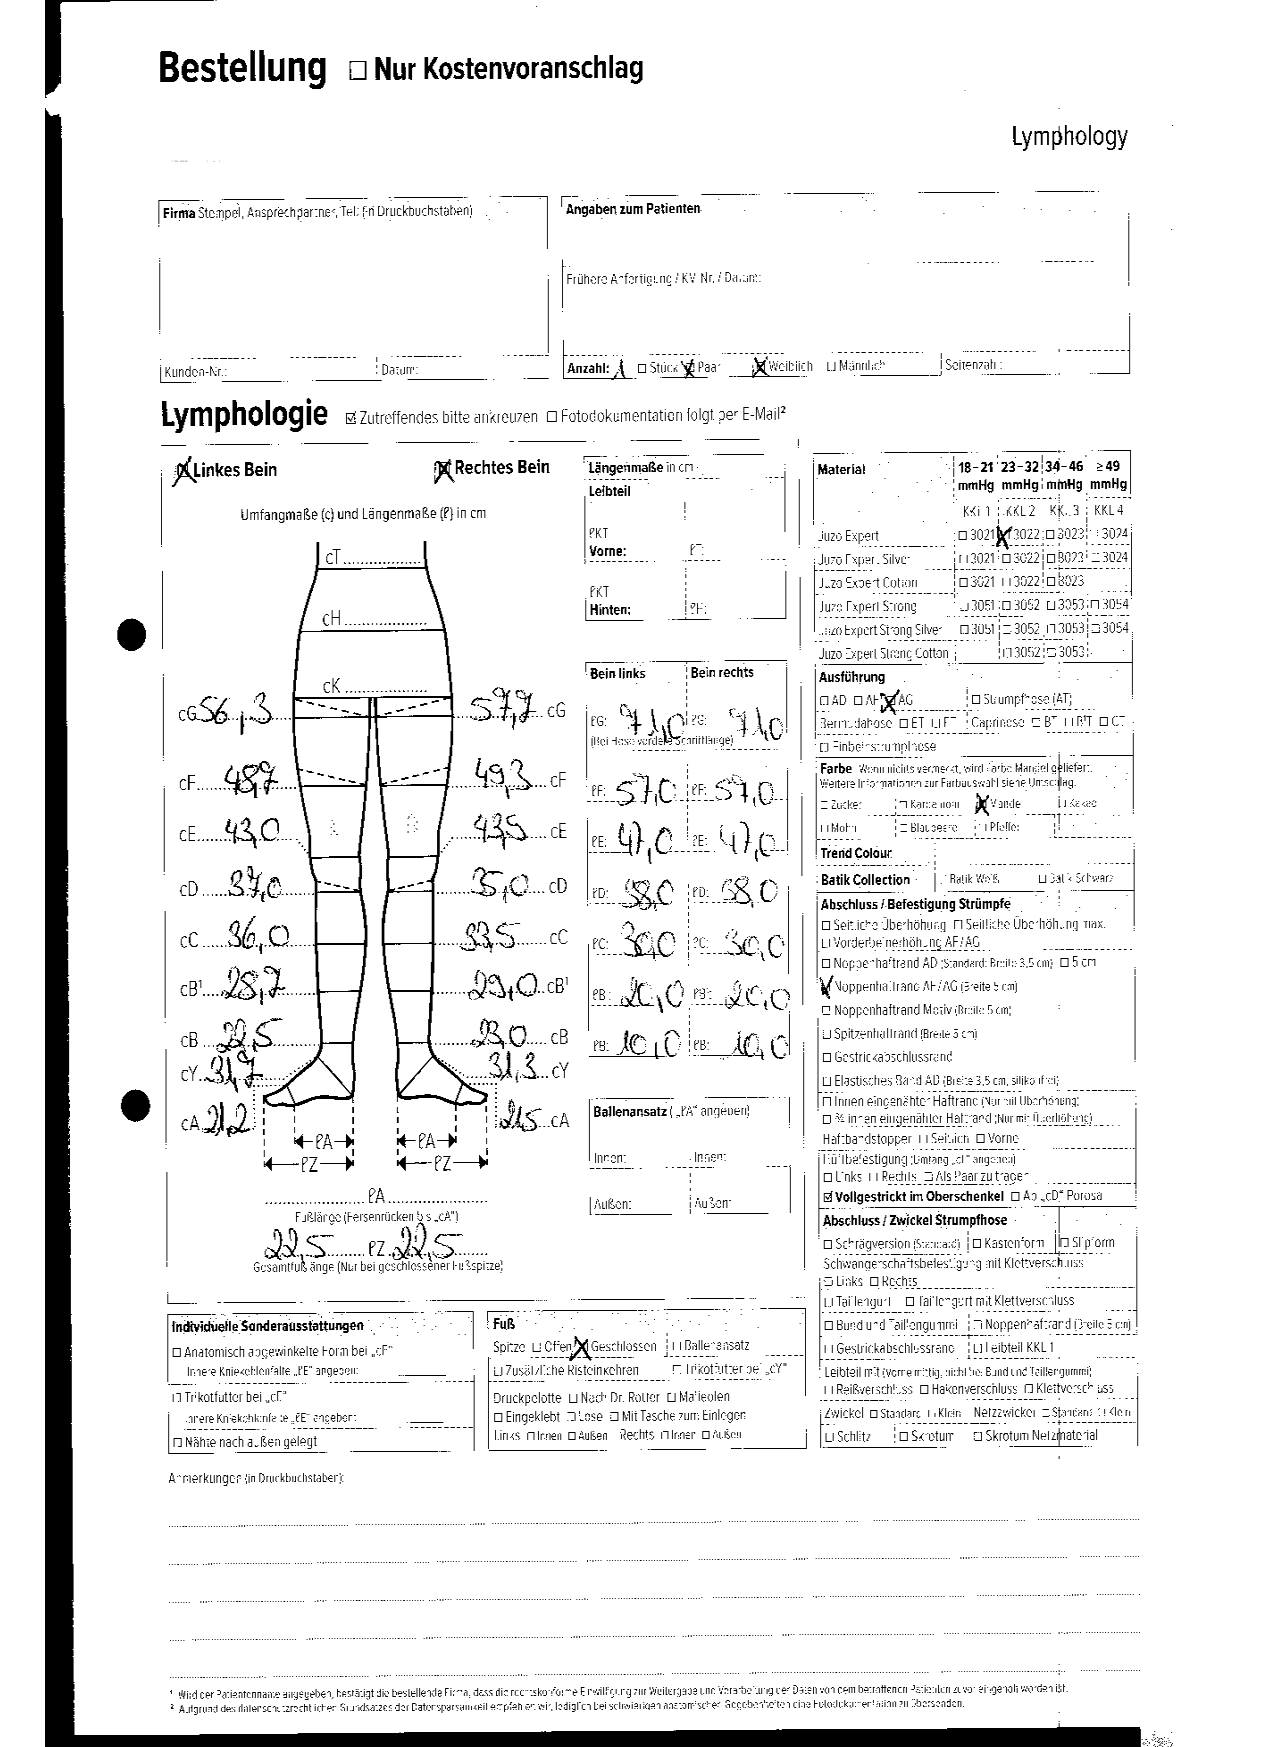 Bestellung ☐ Nur Kostenvoranschlag
Lymphology
Firma Stempel, Ansprechpartner, Tel: (in Druckbuchstaben)
Angaben zum Patienten
Frühere Anfertigung / KV-Nr. / Datum:
Kunden-Nr.: Datum:
Anzahl: 1 ☐ Stück ☒ Paar ☒ Weiblich ☐ Männlich Seitenzahl:
Lymphologie ☒ Zutreffendes bitte ankreuzen ☐ Fotodokumentation folgt per E-Mail²
☒ Linkes Bein ☒ Rechtes Bein
Umfangmaße (c) und Längenmaße (ℓ) in cm
cT
cH
cK
cG 56,3 57,7 cG
cF 48,7 49,3 cF
cE 43,0 43,5 cE
cD 37,0 35,0 cD
cC 36,0 33,5 cC
cB¹ 28,7 29,0 cB¹
cB 22,5 23,0 cB
cY 31,7 31,3 cY
cA 21,2 21,5 cA
ℓA ℓA
ℓZ ℓZ
ℓA
Fußlänge (Fersenrücken bis „cA“)
22,5 ℓZ 22,5
Gesamtfußlänge (Nur bei geschlossener Fußspitze)
Längenmaße in cm
Leibteil
ℓKT
Vorne: ℓT:
ℓKT
Hinten: ℓH:
Bein links Bein rechts
ℓG: 71,0 ℓG: 71,0
(Bei Hose vordere Schrittlänge)
ℓF: 57,0 ℓF: 57,0
ℓE: 47,0 ℓE: 47,0
ℓD: 38,0 ℓD: 38,0
ℓC: 30,0 ℓC: 30,0
ℓB¹: 20,0 ℓB¹: 20,0
ℓB: 10,0 ℓB: 10,0
Ballenansatz („ℓA“ angeben)
Innen: Innen:
Außen: Außen:
Material 18-21 mmHg 23-32 mmHg 34-46 mmHg ≥49 mmHg
KKL 1 KKL 2 KKL 3 KKL 4
Juzo Expert ☐ 3021 ☒ 3022 ☐ 3023 ☐ 3024
Juzo Expert Silver ☐ 3021 ☐ 3022 ☐ 3023 ☐ 3024
Juzo Expert Cotton ☐ 3021 ☐ 3022 ☐ 3023
Juzo Expert Strong ☐ 3051 ☐ 3052 ☐ 3053 ☐ 3054
Juzo Expert Strong Silver ☐ 3051 ☐ 3052 ☐ 3053 ☐ 3054
Juzo Expert Strong Cotton ☐ 3052 ☐ 3053
Ausführung
☐ AD ☐ AF ☒ AG ☐ Strumpfhose (AT)
Bermudahose ☐ ET ☐ FT Caprihose ☐ BT ☐ B¹T ☐ CT
☐ Einbeinstrumpfhose
Farbe Wenn nichts vermerkt, wird Farbe Mandel geliefert.
Weitere Informationen zur Farbauswahl siehe Umschlag.
☐ Zucker ☐ Kardamom ☒ Mandel ☐ Kakao
☐ Mohn ☐ Blaubeere ☐ Pfeffer
Trend Colour
Batik Collection ☐ Batik Weiß ☐ Batik Schwarz
Abschluss / Befestigung Strümpfe
☐ Seitliche Überhöhung ☐ Seitliche Überhöhung max.
☐ Vorderbeinerhöhung AF/AG
☐ Noppenhaftrand AD (Standard: Breite 3,5 cm) ☐ 5 cm
☒ Noppenhaftrand AF/AG (Breite 5 cm)
☐ Noppenhaftrand Motiv (Breite 5 cm)
☐ Spitzenhaftrand (Breite 5 cm)
☐ Gestrickabschlussrand
☐ Elastisches Band AD (Breite 3,5 cm, silikonfrei)
☐ Innen eingenähter Haftrand (Nur mit Überhöhung)
☐ ¾ innen eingenähter Haftrand (Nur mit Überhöhung)
Haftbandstopper ☐ Seitlich ☐ Vorne
Hüftbefestigung (Umfang „cT“ angeben)
☐ Links ☐ Rechts ☐ Als Paar zu tragen
☒ Vollgestrickt im Oberschenkel ☐ Ab „cD“ Porosa
Abschluss / Zwickel Strumpfhose
☐ Schrägversion (Standard) ☐ Kastenform ☐ Slipform
Schwangerschaftsbefestigung mit Klettverschluss
☐ Links ☐ Rechts
☐ Taillengurt ☐ Taillengurt mit Klettverschluss
☐ Bund und Taillengummi ☐ Noppenhaftrand (Breite 5 cm)
☐ Gestrickabschlussrand ☐ Leibteil KKL 1
Leibteil mit (vorne mittig, nicht bei Bund und Taillengummi)
☐ Reißverschluss ☐ Hakenverschluss ☐ Klettverschluss
Zwickel ☐ Standard ☐ Klein Netzzwickel ☐ Standard ☐ Klein
☐ Schlitz ☐ Skrotum ☐ Skrotum Netzmaterial
Individuelle Sonderausstattungen
☐ Anatomisch abgewinkelte Form bei „cF“
Innere Kniekehlenfalte „ℓE“ angeben:
☐ Trikotfutter bei „cE“
Innere Kniekehlenfalte „ℓE“ angeben:
☐ Nähte nach außen gelegt
Fuß
Spitze ☐ Offen ☒ Geschlossen ☐ Ballenansatz
☐ Zusätzliche Risteinkehren ☐ Trikotfutter bei „cY“
Druckpelotte ☐ Nach Dr. Rotter ☐ Malleolen
☐ Eingeklebt ☐ Lose ☐ Mit Tasche zum Einlegen
Links ☐ Innen ☐ Außen Rechts ☐ Innen ☐ Außen
Anmerkungen (in Druckbuchstaben):
¹ Wird der Patientenname angegeben, bestätigt die bestellende Firma, dass die rechtskonforme Einwilligung zur Weitergabe und Verarbeitung der Daten von dem betroffenen Patienten zuvor eingeholt worden ist.
² Aufgrund des datenschutzrechtlichen Grundsatzes der Datensparsamkeit empfehlen wir, lediglich bei schwierigen anatomischen Gegebenheiten eine Fotodokumentation zu übersenden.